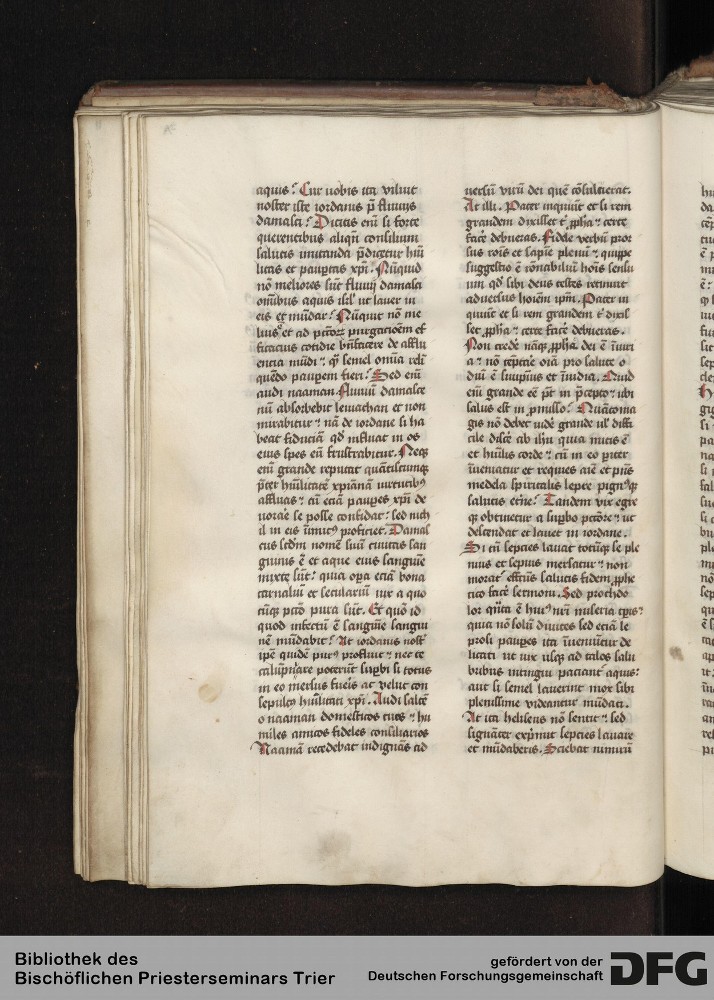 aquis? Cur uobis ita viluit
noster iste iordanis p̄ fluuijs
damasci? Dicitis em̄ si forte
querentibus aliqn̄ consilium
salutis inuitanda p̄dicetur hūi
litas et paupertas xp̄i. Nūquid
nō meliores sūt fluuij damasci
om̄ibus aquis isrl̄ ut lauer in
eis et mūdar? Nūquit nō me
lius et ad pctōr̄ purgacioēm ef
ficacius cotidie bn̄facere de afflu
encia mūdi et qͣ semel omīa reli
quēdo paupem fieri? Sed em̄
audi naaman. Fluuiū damasce
nū absorbebit leuiathan et non
mirabitur nā de iordane si ha
beat fiduciā qd̄ influat in os
eius spes eū frustrabitur. Neqꝫ
em̄ grande reputat quātiscumqꝫ
pter hūilitatē xp̄ianā uirtutibꝰ
affluas cū eciā paupes xp̄i de
uorare se posse confidat? sed nich
il in eis inimicꝰ proficiet. Damas
cus scdm̄ nomē suū ciuitas san
guinis ē et aque eius sanguīe
mixte sūt? quia opa eciā bona
carnaliū et seculariū uix a quo
cūqꝫ pctō pura sūt. Et quō id
quod infectū ē sanguīne sangui
nē mūdabit? At iordanis nost̄
ipē quidē purꝰ profluit nec te
calūpniare poterūt supbi si totus
in eo mersus fueris ac velut con
sepultꝰ hūilitati xp̄i. Audi saltē
o naaman domesticos tuos hu
miles amicos fideles consiliarios
Naamā recedebat indignās ad
uersū virū dei quē cōsuluerat.
At illi. Pater inquiūt et si rem
grandem dixisset t ꝓpha certe
facē debueras. Fidele verbū pror
sus rōis et sapiē plenū quippe
suggestio ē rōnabiliū hoīs sensu
um qd̄ sibi deus celestis retinuit
aduersus hoiēm ipm̄. Pater in
quiūt et si rem grandem t dixis
set ꝓpha certe facē debueras.
Non credē nāqꝫ ꝓphe dei ē iniuri
a nō tēptare oīa pro salute o
diū ē suiipius et inuidia. Quid
em̄ grande eē pt̄ in p̄cepto ubi
salus est in ꝓmisso? Quātoma
gis nō debet uidē grande ul̄ diffi
cile discē ab ih̄u quia mitis ē
et hūilis corde cū in eo pariter
inueniatur et requies aīe et prīs
medela spiritalis lepre pignꝰqꝫ
salutis eterne? Tandem vix egre
qꝫ obtinetur a supbo pctōre ut
descendat et lauet in iordane.
Si cū sepcies lauat totūqꝫ se ple
nius et sepius mersatur non
morat effectus salutis fidem ꝓphe
tico facē sermoni. Sed prochdo
lor quāta ē huiꝰ nr̄i miseria tpis?
quia nō solū diuites sed eciā le
prosi paupes ita inueniūtur de
licati ut uix usqꝫ ad talos salu
bribus intingui paciant̄ aquis?
aut si semel lauerint mox sibi
plenissime videantur mūdati.
At ita heliseus nō sentit sed
signāter exprimit sepcies lauare
et mūdaberis. Sciebat nimirū
Bibliothek des
Bischöflichen Priesterseminars Trier
gefördert von der
Deutschen Forschungsgemeinschaft
DFG